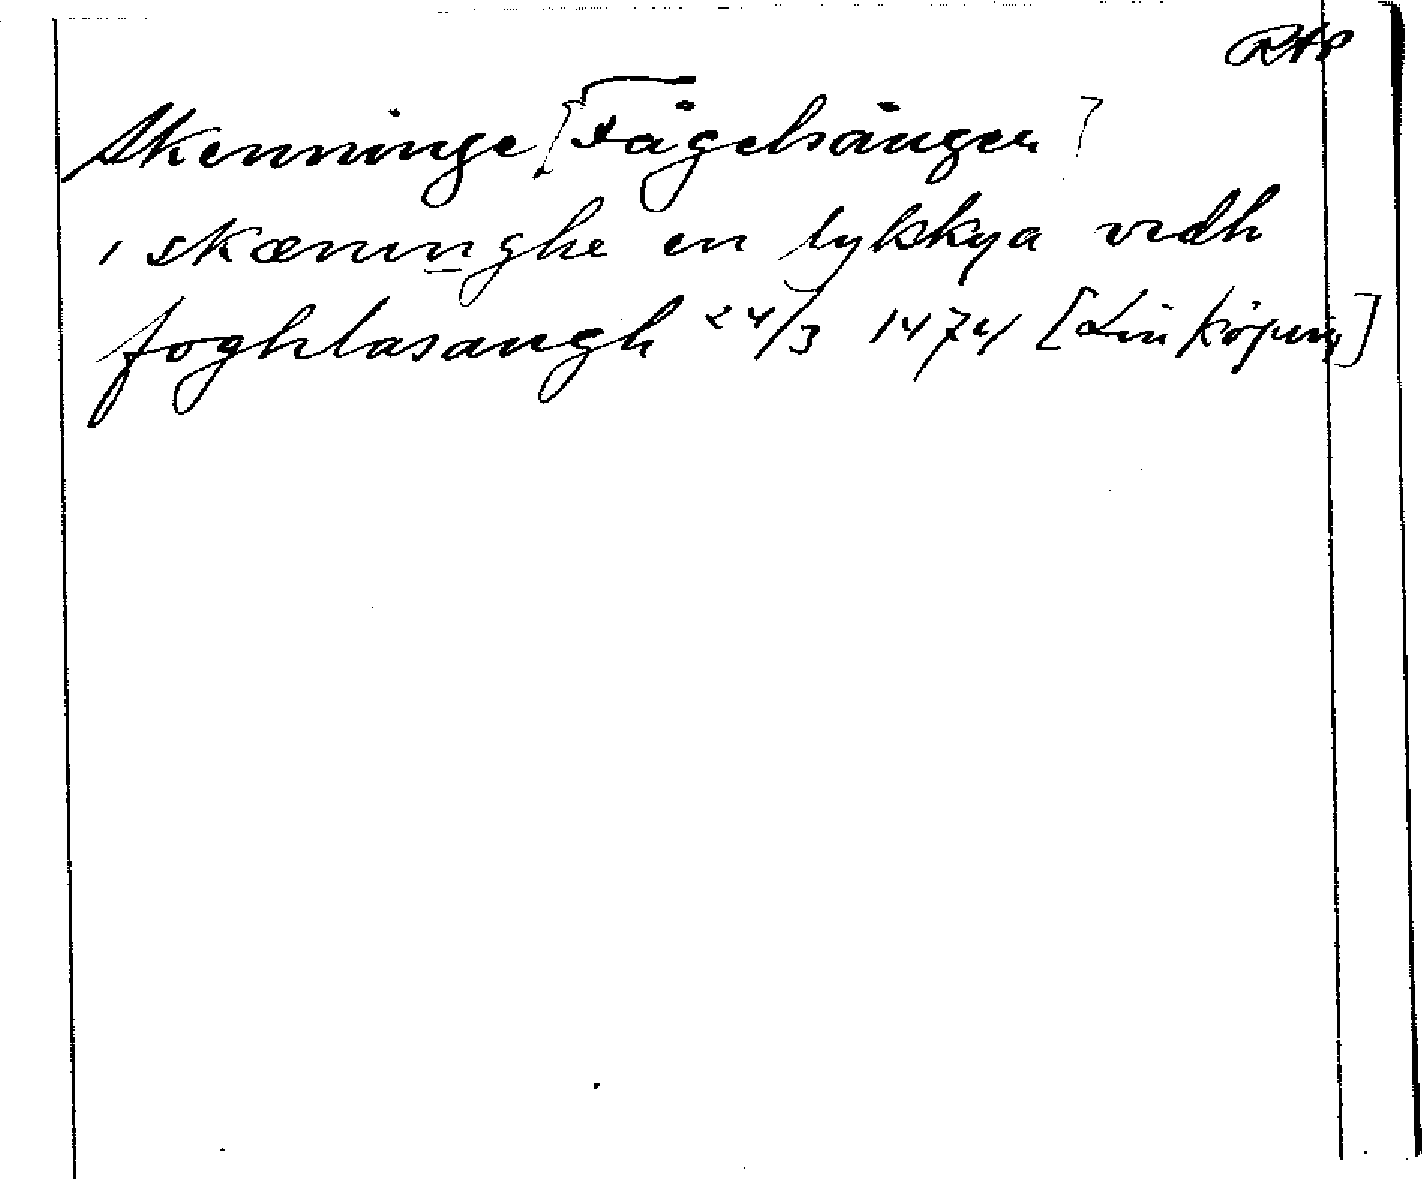 RAP
Skenninge [Fågelsången]
i skænninghe en lykkya vidh
foghlasangh 24/3 1474 [Linköping]